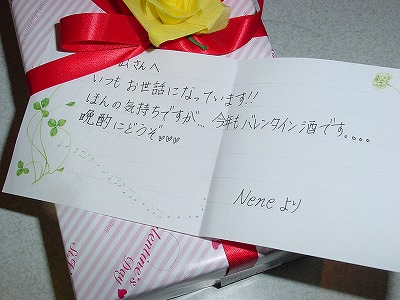 さんへ
いつも お世話になっています!!
ほんの気持ちですが... 今年もバレンタイン酒です....
晩酌にどうぞ♡♡♡
Nene より
Valentine's
Day